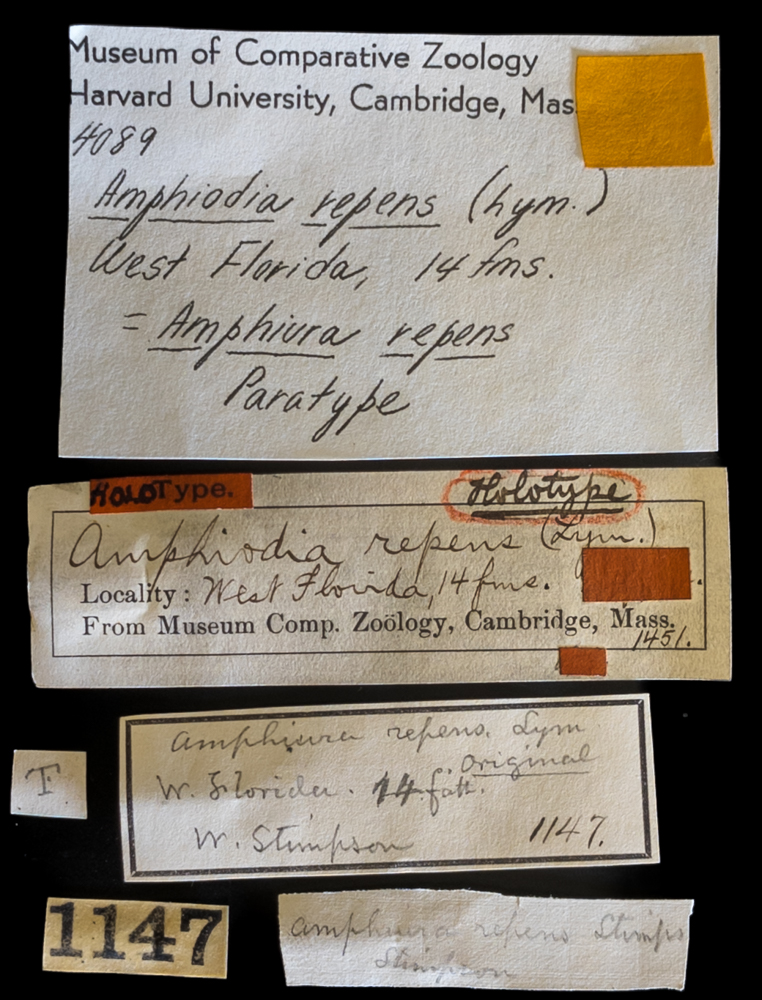 Museum of Comparative Zoology
Harvard University, Cambridge, Mas
4089
Amphiodia repens (Lym.)
West Florida, 14 fms.
= Amphiura repens
Paratype
HOLOType.
Holotype
Amphiodia repens (Lym.)
Locality: West Florida, 14 fms.
From Museum Comp. Zoölogy, Cambridge, Mass.
1451.
Amphiura repens. Lym
Original
W. Florida. 14 fath.
W. Stimpson
1147.
T
1147
Amphiura repens Stimps
Stimpson